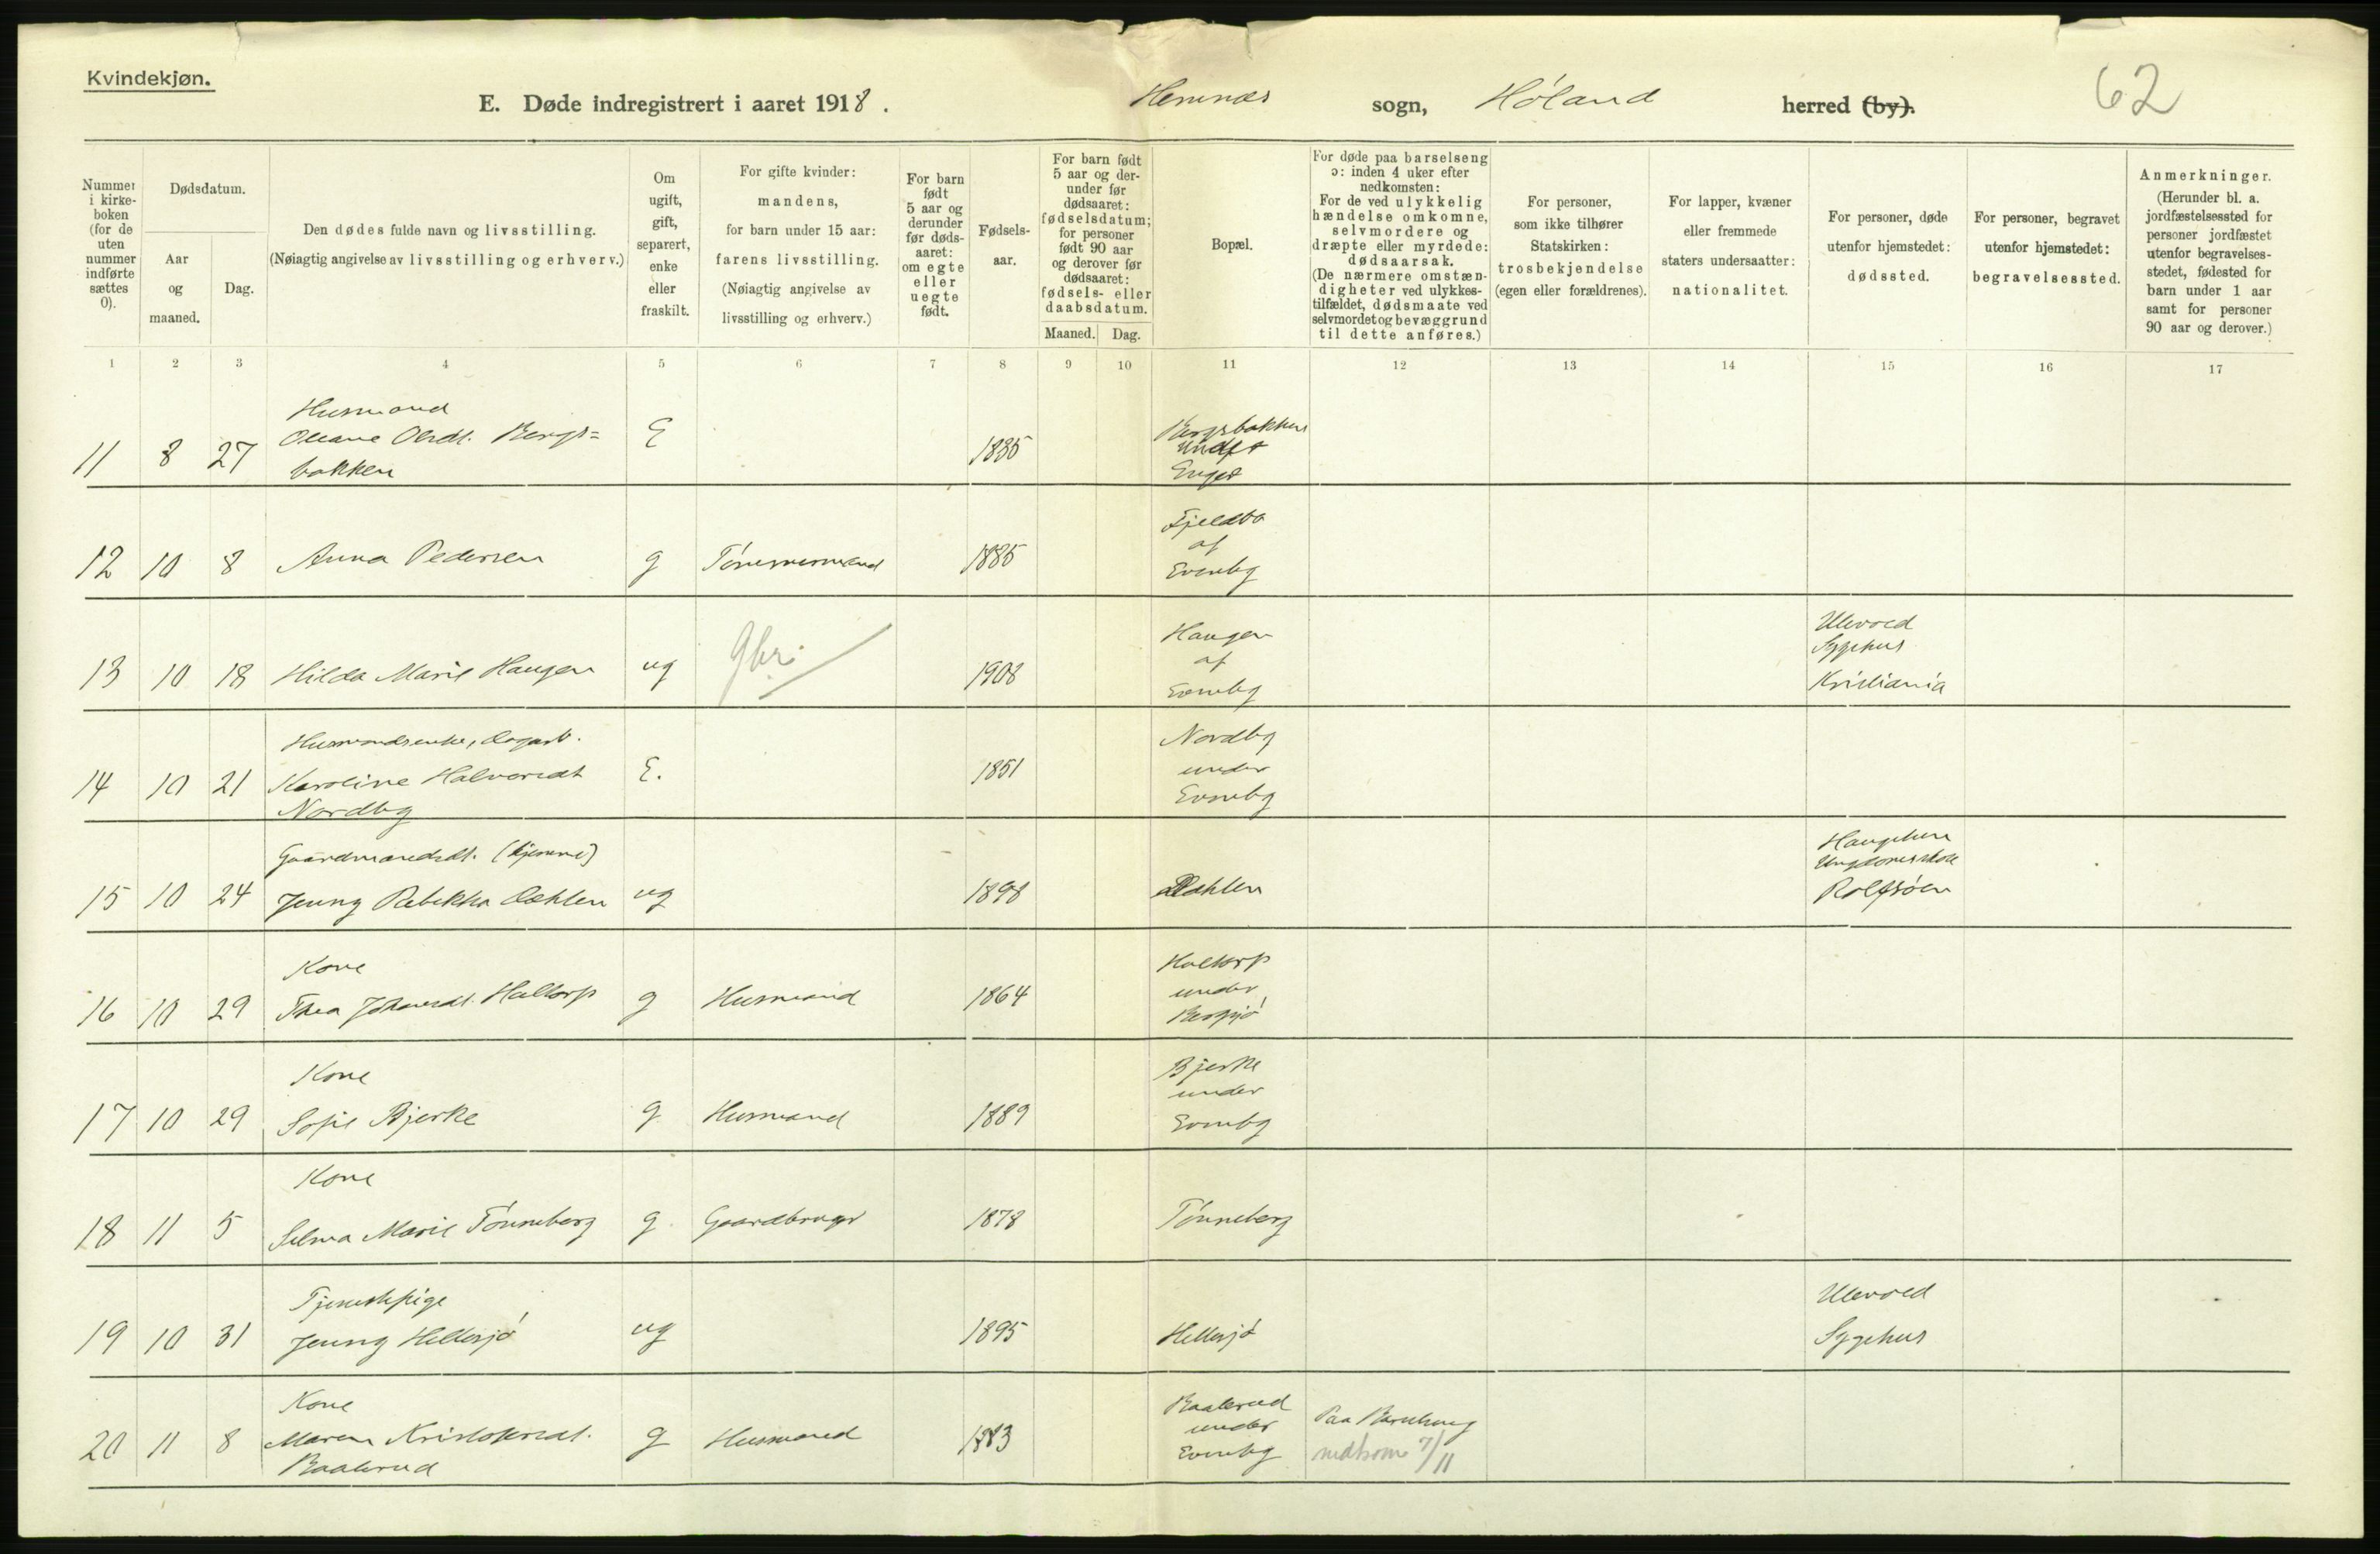 Kvindekjøn.
E. Døde indregistrert i aaret 1918. Hemnæs sogn, Høland herred (by). 62
Nummer i kirke-boken (for de uten nummer indførte sættes 0).
Dødsdatum.
Aar og maaned.
Dag.
Den dødes fulde navn og livsstilling.
(Nøiagtig angivelse av livsstilling og erhverv.)
Om ugift, gift, separert, enke eller fraskilt.
For gifte kvinder:
mandens,
for barn under 15 aar:
farens livsstilling.
(Nøiagtig angivelse av
livsstilling og erhverv.)
For barn født 5 aar og derunder før døds-aaret: om egte eller uegte født.
Fødsels-aar.
For barn født 5 aar og der-under før dødsaaret: fødselsdatum; for personer født 90 aar og derover før dødsaaret: fødsels- eller daabsdatum.
Maaned. Dag.
Bopæl.
For døde paa barselseng
ɔ: inden 4 uker efter
nedkomsten:
For de ved ulykkelig
hændelse omkomne,
selvmordere og
dræpte eller myrdede:
dødsaarsak.
(De nærmere omstæn-
digheter ved ulykkes-
tilfældet, dødsmaate ved
selvmordet og bevæggrund
til dette anføres.)
For personer,
som ikke tilhører
Statskirken:
trosbekjendelse
(egen eller forældrenes).
For lapper, kvæner
eller fremmede
staters undersaatter:
nationalitet.
For personer, døde
utenfor hjemstedet:
dødssted.
For personer, begravet
utenfor hjemstedet:
begravelsessted.
Anmerkninger.
(Herunder bl. a.
jordfæstelsessted for
personer jordfæstet
utenfor begravelses-
stedet, fødested for
barn under 1 aar
samt for personer
90 aar og derover.)
1 2 3 4 5 6 7 8 9 10 11 12 13 14 15 16 17
Husmand
Oleane Olsdt. Bergs=
bakken
11 8 27 E 1835
Bergsbakken
Undft
Enget
12 10 8 Anna Pedersen g Tømmermand 1885
Fjeldbo
af
Evenby
13 10 18 Hilda Marie Haugen ug Gbr. 1908
Haugen
af
Evenby
Ulevold
Sygehus
Kristiania
Husmandsenke, Dagarb.
14 10 21 Karoline Halvorsdt E. 1851
Nordby
Nordby
under
Evenby
Gaardmandsdt. (hjemme)
15 10 24 Jenny Rebekka Dæhlen ug 1898 Dæhlen
Haugehus
Ungdomsskole
Rolfsøen
Kone
16 10 29 Thea Johansdt. Holtorp g Husmand 1864
Holtorp
under
Bergsjø
Kone
17 10 29 Sofie Bjerke g Husmand 1889
Bjerke
under
Evenby
Kone
18 11 5 Selma Marie Tønneberg g Gaardbruger 1878 Tønneberg
Tjenestepige
19 10 31 Jenny Hellesjø ug 1895 Hellesjø
Ulevold
Sygehus
Kone
20 11 8 Maren Kristofersdt. g Husmand 1883
Baaterud
Baaterud
under
Evenby
Paa Barselseng
nedkom 7/11